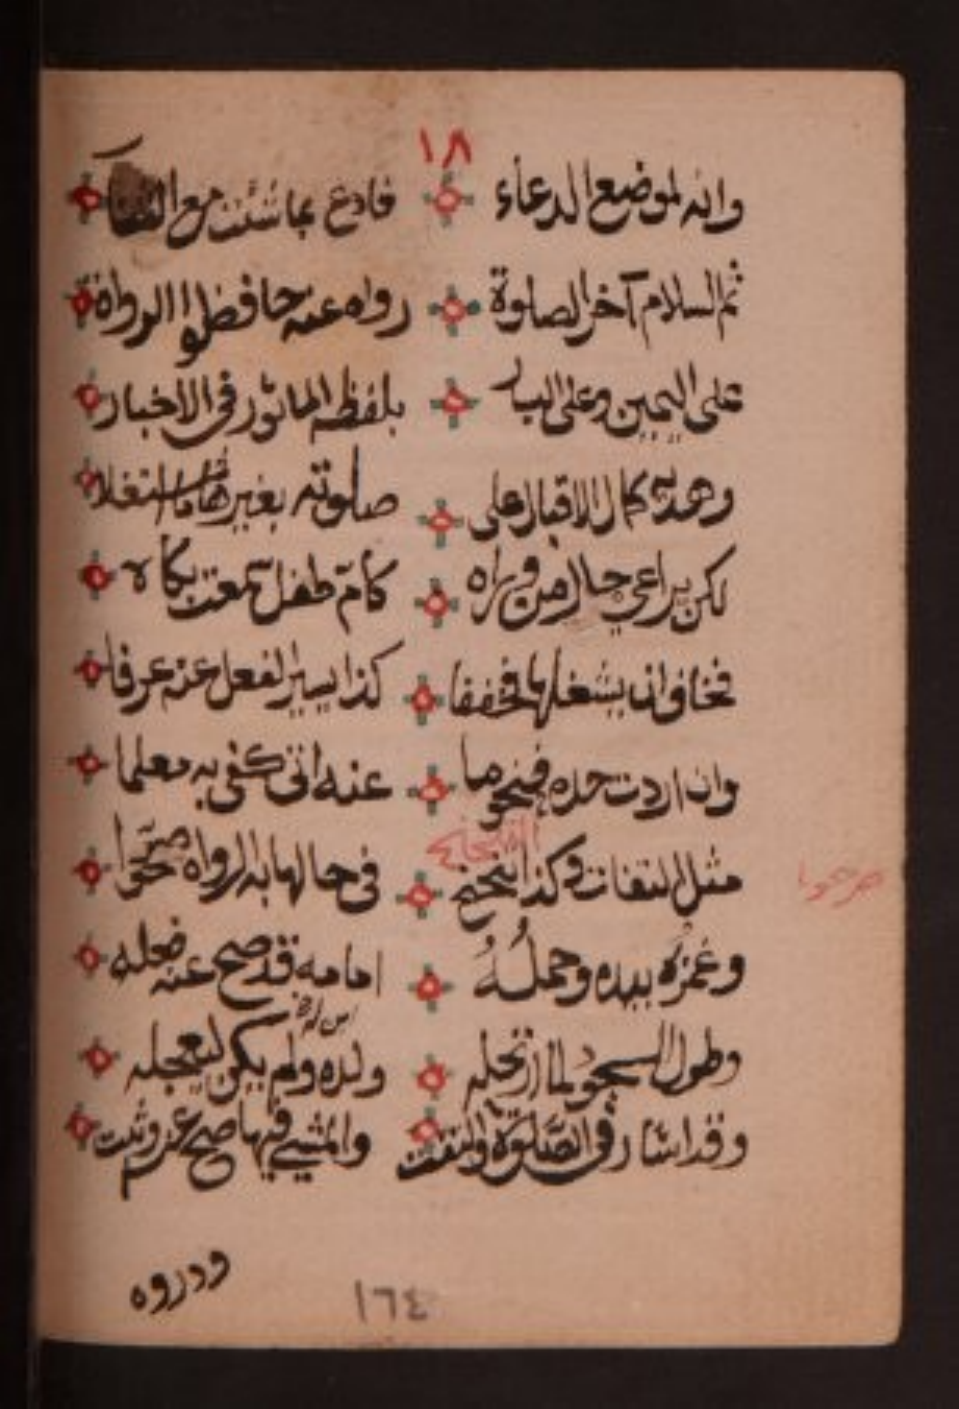 ١٨
وانه لموضع الدعاء فادع بما شئت مع
ثم السلام آخر الصلوة رواه عنه حافظوا الرواة
على اليمين وعلى اليسار بلفظه الماثور في الاخبار
وهديه كمال الاقبال على صلوته بغير
لكن يراعي حال من وراه كام طفل سمعت بكاه
فخاف ان يشغلها فخففا كذا يسير الفعل عنه عرفا
وان اردت حده فنحو ما عنه اتى كفى به معلما
مثل التفات وكذا التنحنح في حالها به الرواه صرحوا
صرحوا
وغمزه بيده وحمله امامه قد صح عنه فعله
وطول السجود لما ارتحله ولده ولم يكن ليعجله
وقد اشار في الصلوة والتفت والمشي فيها صح عنه وثبت
ودروه
١٦٤